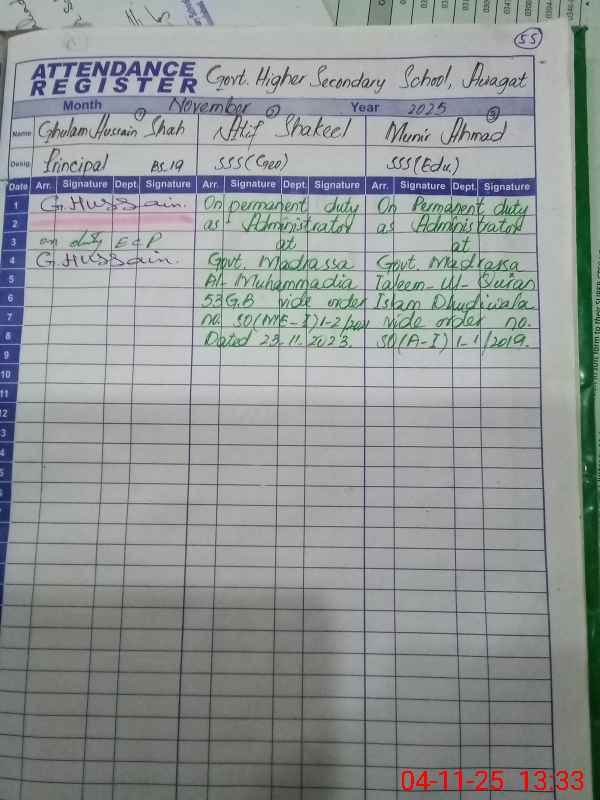 55
ATTENDANCE REGISTER Govt. Higher Secondary School, Awagat
Month November Year 2025
Name Ghulam Hussain Shah Atif Shakeel Munir Ahmad
1 2 3
Desig. Principal BS.19 SSS(Geo) SSS(Edu.)
Date Arr. Signature Dept. Signature Arr. Signature Dept. Signature Arr. Signature Dept. Signature
1 G.Hussain. On permanent duty On Permanent duty
2 as Administrator as Administrator
3 on duty ECP at at
4 G.Hussain. Govt. Madrassa Govt. Madrassa
5 Al-Muhammadia Taleem-Ul-Quran
6 53 G.B vide order Islam Dhudiwala
7 no. SO(ME-I)1-2/2021 vide order no.
8 Dated 23.11.2023. SO(A-I) 1-1/2019.
9
10
11
12
3
4
5
04-11-25 13:33